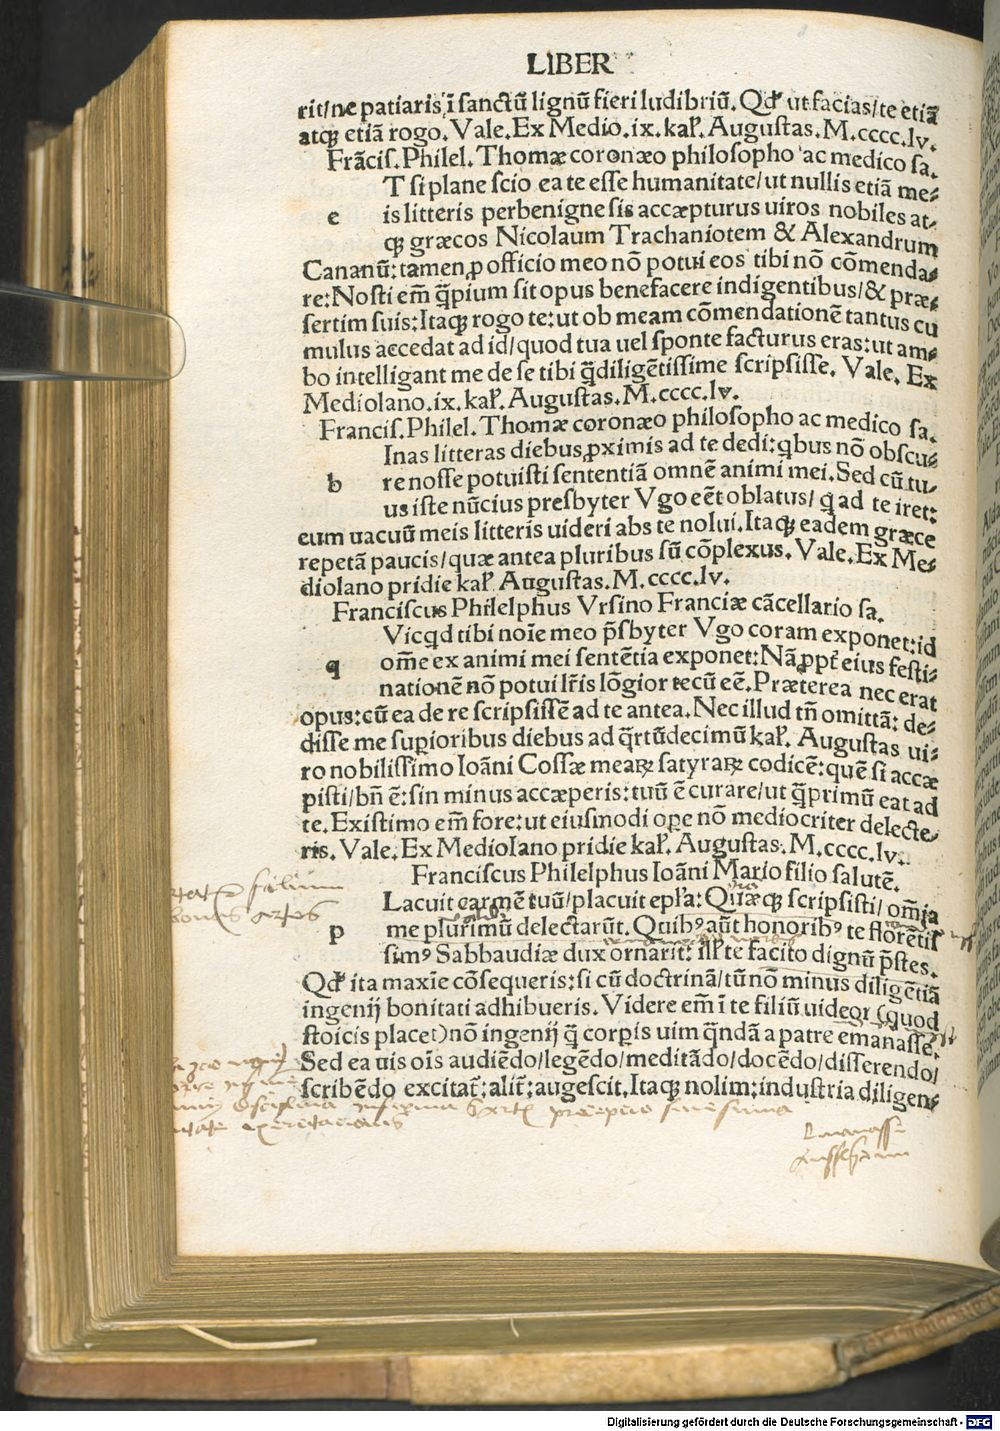 LIBER
rit/ne patiaris, ī sanctū lignū fieri ludibriū. Qđ ut facias/te etiā
atqꝫ etiā rogo. Vale. Ex Medio. ix. kaƚ. Augustas. M. cccc. lv.
Frācis. Philel. Thomæ coronæo philosopho ac medico sa.
T si plane scio ea te esse humanitate/ut nullis etiā me⸗
e is litteris perbenigne sis accæpturus uiros nobiles at⸗
qꝫ græcos Nicolaum Trachaniotem & Alexandrum
Cananū: tamen ꝓ officio meo nō potui eos tibi nō cōmenda⸗
re: Nosti em̄ q̄ pium sit opus benefacere indigentibus/& præ⸗
sertim suis: Itaqꝫ rogo te: ut ob meam cōmendationē tantus cu
mulus accedat ad id/quod tua uel sponte facturus eras: ut am⸗
bo intelligant me de se tibi q̄ diligētissime scripsisse. Vale. Ex
Mediolano. ix. kaƚ. Augustas. M. cccc. lv.
Francis. Philel. Thomæ coronæo philosopho ac medico sa.
Inas litteras diebus ꝓximis ad te dedi: qbus nō obscu⸗
b re nosse potuisti sententiā omnē animi mei. Sed cū tu⸗
us iste nūcius presbyter Vgo eēt oblatus/ q ad te iret:
eum uacuū meis litteris uideri abs te nolui. Itaqꝫ eadem græce
repetā paucis/quæ antea pluribus sū cōplexus. Vale. Ex Me⸗
diolano pridie kaƚ. Augustas. M. cccc. lv.
Franciscus Philelphus Vrsino Franciæ cācellario sa.
Vicqd tibi noīe meo p̄sbyter Vgo coram exponet: id
q om̄e ex animi mei sentētia exponet: Nā ꝓpt̄ eius festi⸗
nationē nō potui lr̄is lōgior tecū eē. Præterea nec erat
opus: cū ea de re scripsissē ad te antea. Nec illud tn̄ omittā: de⸗
disse me superioribus diebus ad q̄rtūdecimū kaƚ. Augustas ui⸗
ro nobilissimo Ioāni Cossæ mearꝝ satyrarꝝ codicē: quē si accæ
pisti/bn̄ ē: sin minus accæperis: tuū ē curare/ut q̄primū eat ad
te. Existimo em̄ fore: ut eiusmodi ope nō mediocriter delecte⸗
ris. Vale. Ex Mediolano pridie kaƚ. Augustas. M. cccc. lv.
Franciscus Philelphus Ioāni Mario filio salutē.
Lacuit carmē tuū/placuit epƚa: Quæqꝫ scripsisti/om̄ia
p me plurimū delectarūt. Quibꝰ aūt honoribꝰ te florētis
simꝰ Sabbaudiæ dux ornarit: illis te facito dignū p̄stes.
Qđ ita maxīe cōsequeris: si cū doctrinā/tū nō minus diligētiā
ingenij bonitati adhibueris. Videre em̄ ī te filiū uideor (quod
stoicis placet) nō ingenij q̄ corpis uim q̄ndā a patre emanasse.
Sed ea uis oīs audiēdo/legēdo/meditādo/docēdo/disserendo/
scribēdo excitat̄: alit̄: augescit. Itaqꝫ nolim: industria diligen⸗
Digitalisierung gefördert durch die Deutsche Forschungsgemeinschaft - DFG